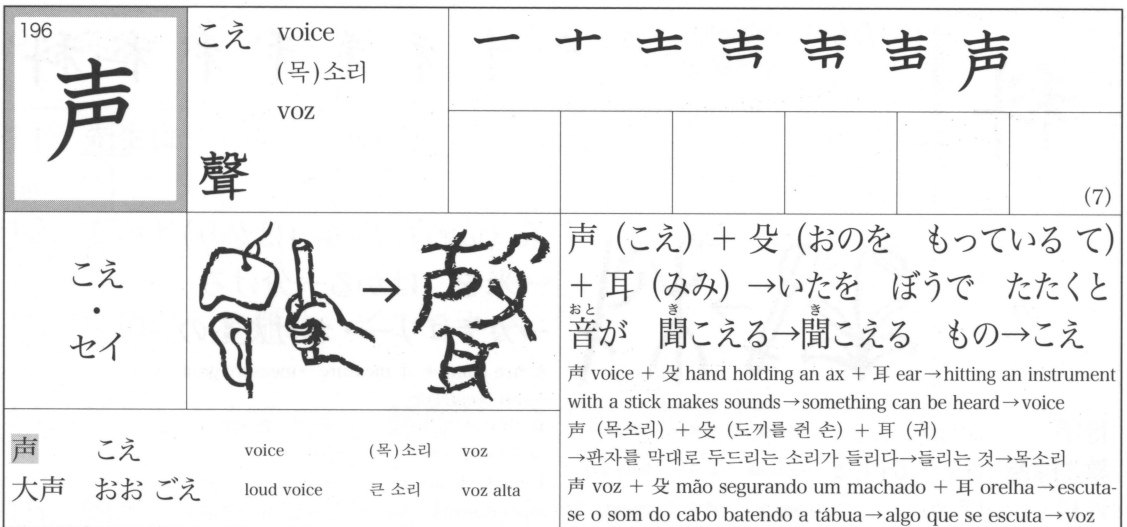 196
声
こえ voice
(목)소리
voz
聲
一 十 士 声
(7)
こえ
・
セイ
声（こえ）＋ 殳（おのを もっている て）
＋ 耳（みみ）→いたを ぼうで たたくと
おと き き
音が 聞こえる→聞こえる もの→こえ
声 voice + 殳 hand holding an ax + 耳 ear→hitting an instrument
with a stick makes sounds→something can be heard→voice
声 (목소리) + 殳 (도끼를 쥔 손) + 耳 (귀)
→판자를 막대로 두드리는 소리가 들리다→들리는 것→목소리
声 voz + 殳 mão segurando um machado + 耳 orelha→escuta-
se o som do cabo batendo a tábua→algo que se escuta→voz
声 こえ voice (목)소리 voz
大声 おお ごえ loud voice 큰 소리 voz alta